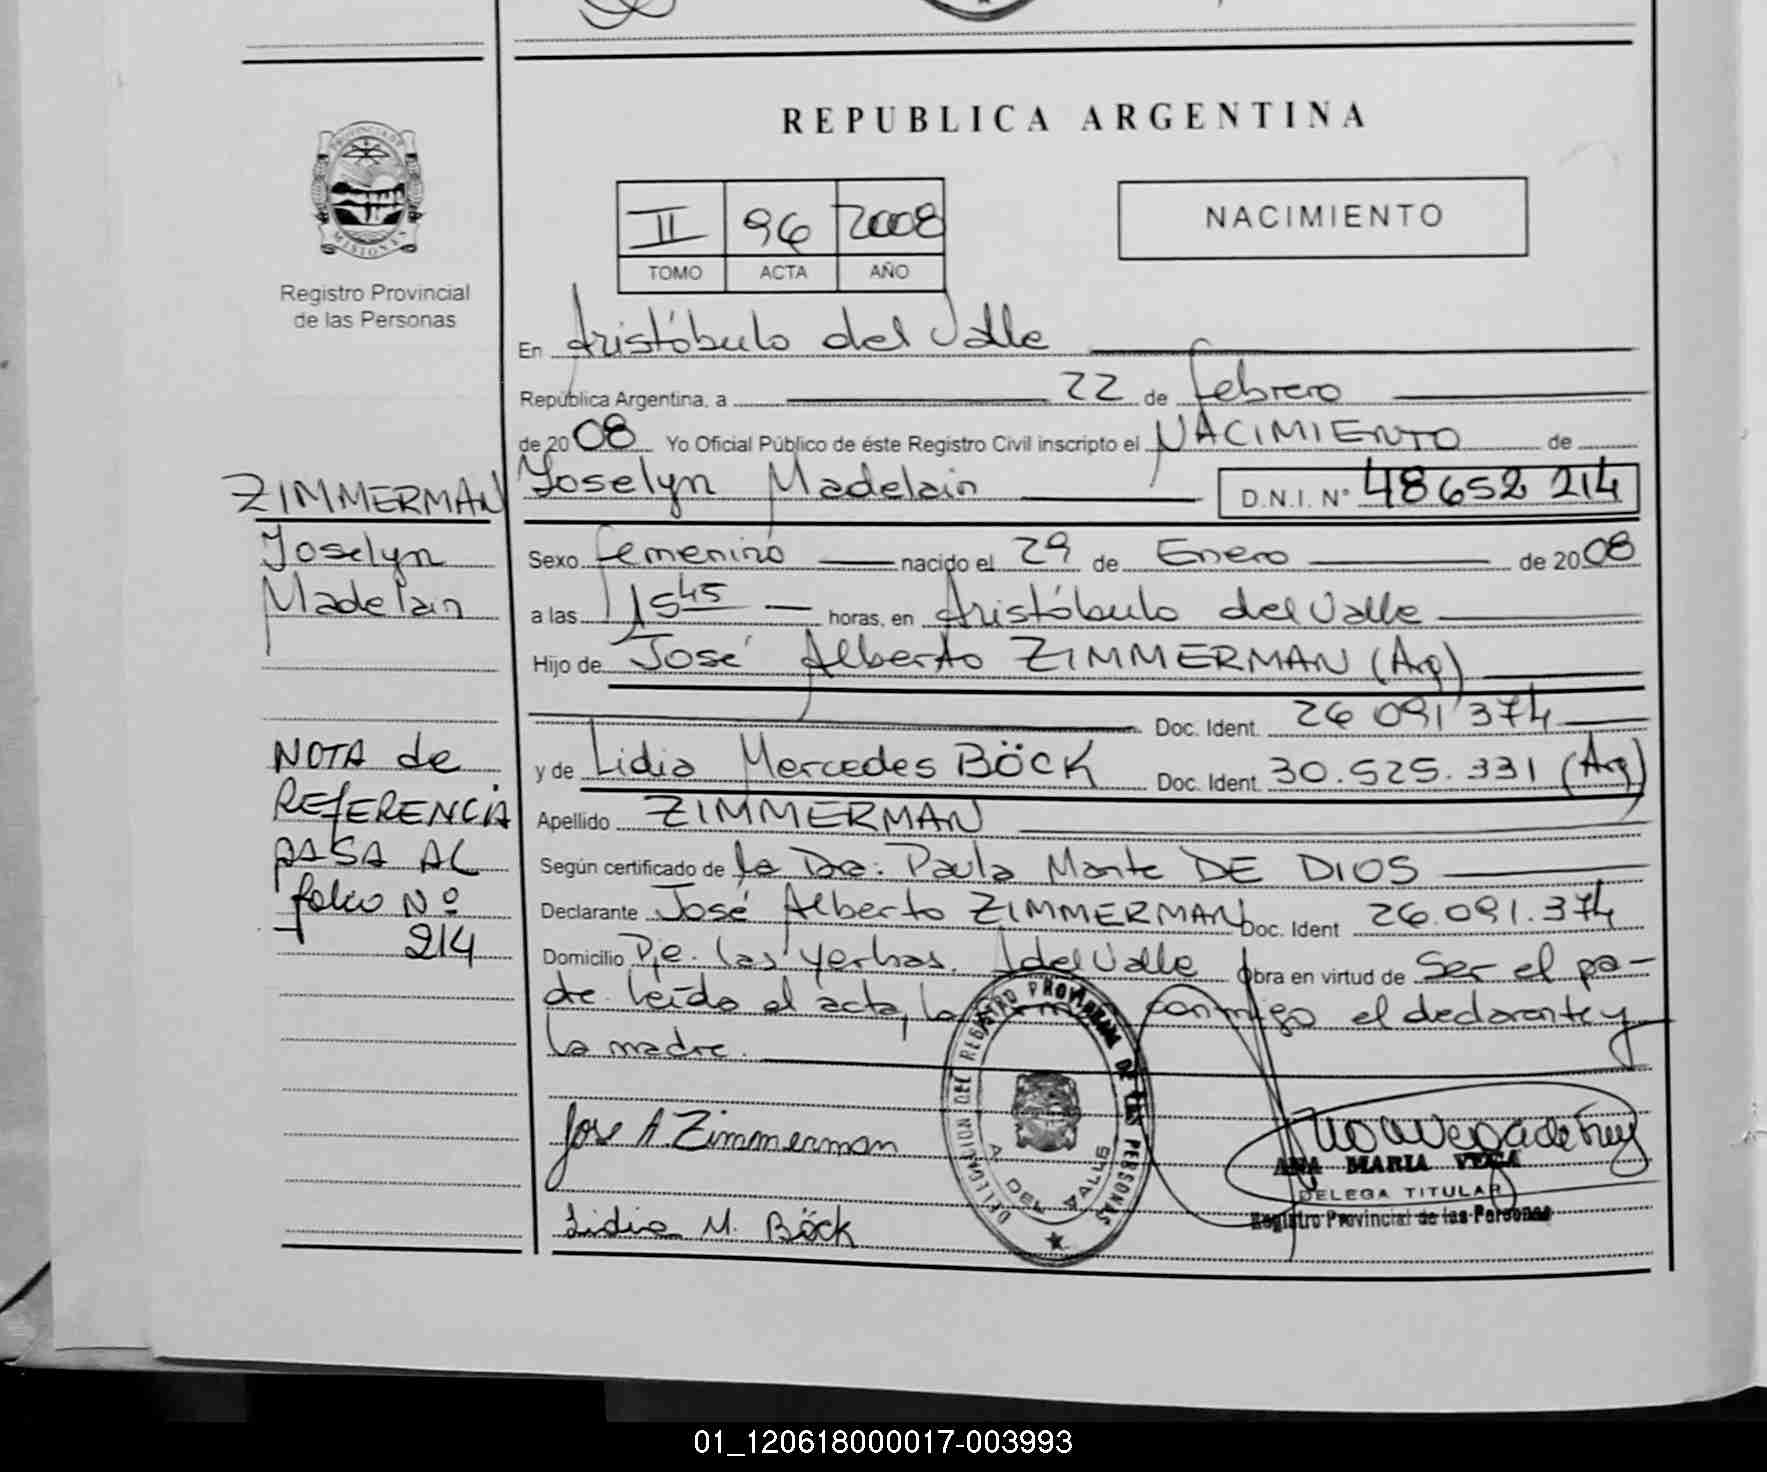 REPUBLICA ARGENTINA
PROVINCIA DE
MISIONES
Registro Provincial
de las Personas
II 96 2008
TOMO ACTA AÑO
NACIMIENTO
En Aristóbulo del Valle
República Argentina, a 22 de febrero
de 2008 Yo Oficial Público de éste Registro Civil inscripto el NACIMIENTO de
Yoselyn Madelain D.N.I. Nº 48652 214
ZIMMERMAN
Yoselyn
Madelain
Sexo femenino nacido el 29 de Enero de 2008
a las 1545 horas, en Aristóbulo del Valle
Hijo de José Alberto ZIMMERMAN (Arg)
Doc. Ident. 26 091 374
y de Lidia Mercedes BÖCK Doc. Ident. 30.525.331 (Arg)
Apellido ZIMMERMAN
Según certificado de la Dra: Paula Marite DE DIOS
Declarante José Alberto ZIMMERMAN Doc. Ident 26.091.374
Domicilio Pje. las yerbas. A del Valle Obra en virtud de Ser el pa-
dre. leída el acta, la conmigo el declarante y
la madre.
NOTA de
REfERENCiA
PASA AL
folio Nº
214
Jose A. Zimmerman
Lidia M. Böck
DELEGACION DEL REGISTRO PROVINCIAL DE LAS PERSONAS
A. DEL VALLE
ANA MARIA VEGA
DELEGA TITULAR
Registro Provincial de las Personas
01_120618000017-003993